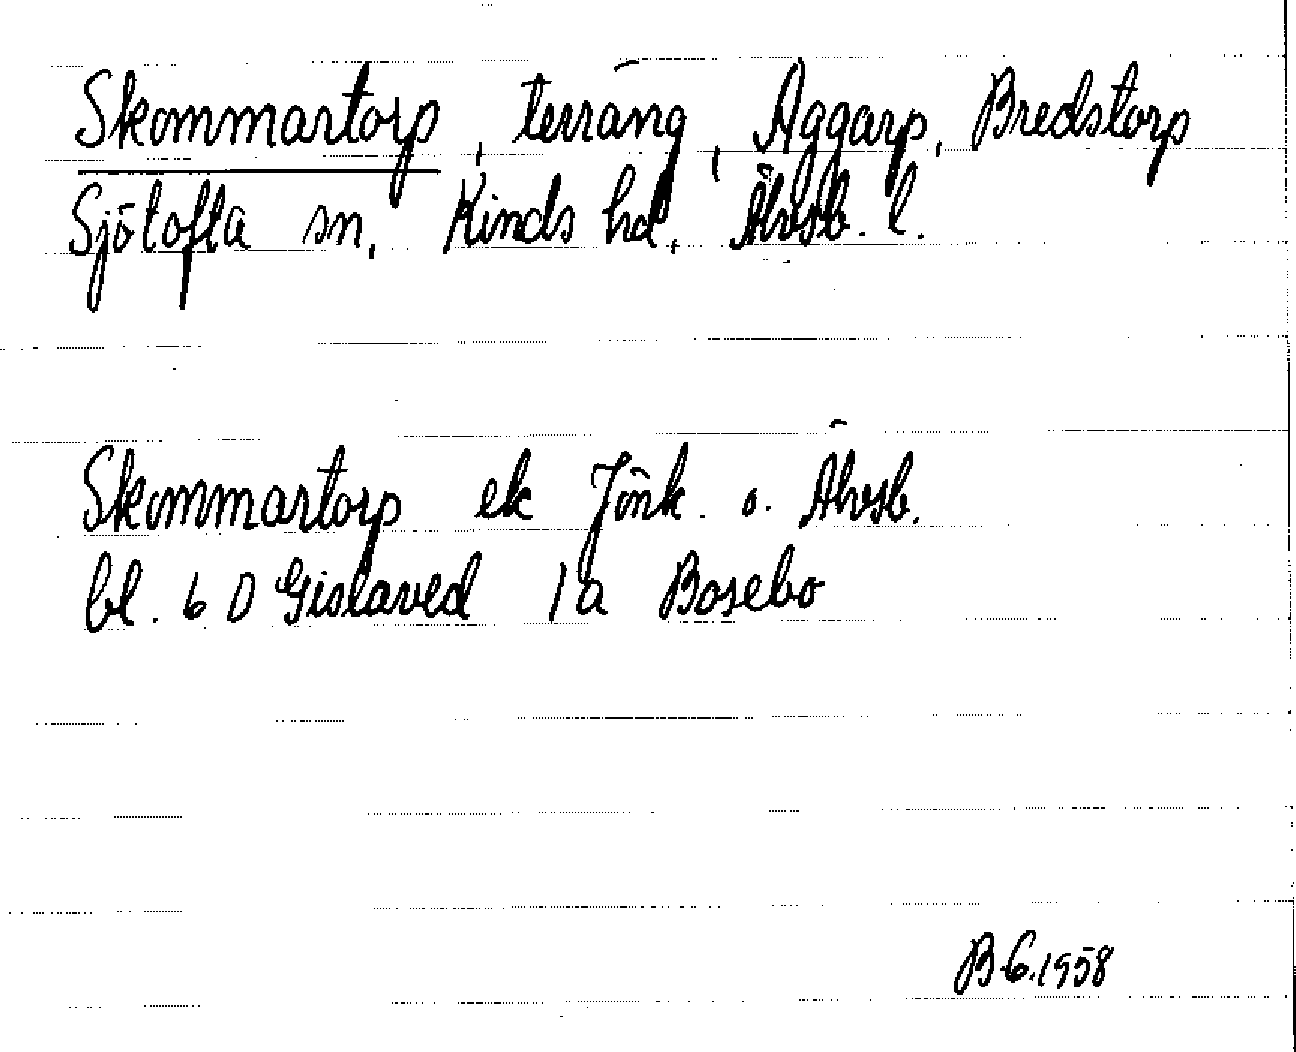 Skommartorp, terräng, Aggarp, Bredstorp
Sjötofta sn, Kinds hd, Älvsb. l.
Skommartorp ek Jönk. o. Älvsb.
bl. 6 D Gislaved 1a Bosebo
B.G.1958